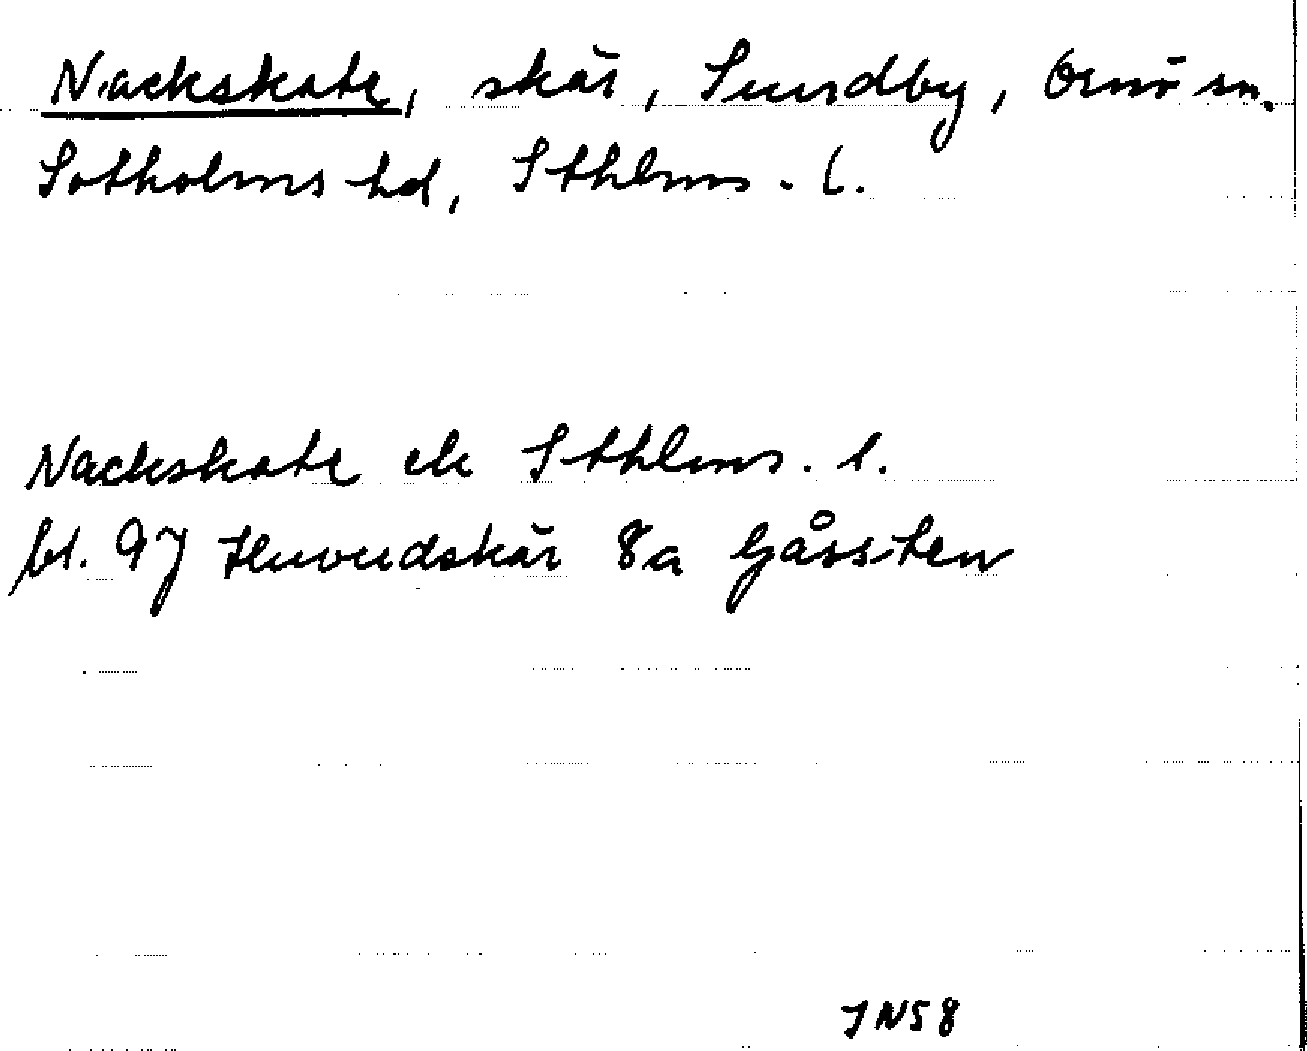 Nackskate, skär, Sundby, Ornö sn.
Sotholms hd, Sthlms. l.
Nackskate ek Sthlms. l.
bl. 97 Huvudskär 8a Gåssten
JNS8